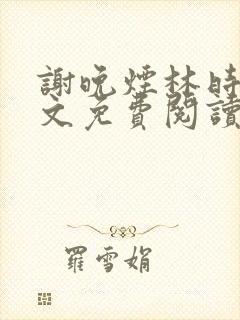 謝晚煙林時
文免費閱讀
羅雪娟